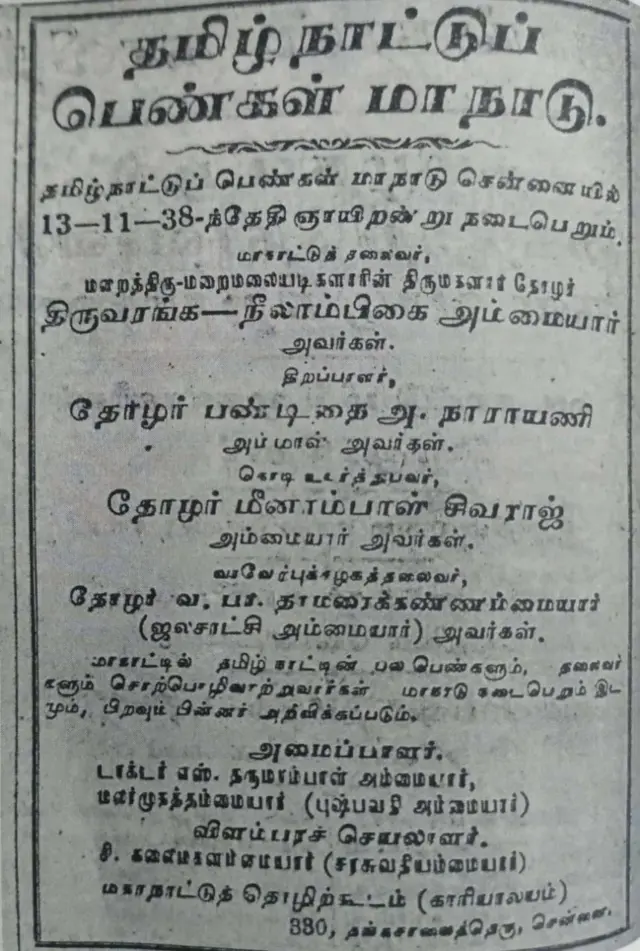 தமிழ்நாட்டுப்
பெண்கள் மாநாடு.
தமிழ்நாட்டுப் பெண்கள் மாநாடு சென்னையில்
13—11—38-ந்தேதி ஞாயிறன்று நடைபெறும்.
மாநாட்டுத் தலைவர்,
மறைத்திரு-மறைமலையடிகளாரின் திருமகளார் தோழர்
திருவரங்க—நீலாம்பிகை அம்மையார்
அவர்கள்.
திறப்பாளர்,
தோழர் பண்டிதை அ. நாராயணி
அம்மாள் அவர்கள்.
கொடி உயர்த்துபவர்,
தோழர் மீனாம்பாள் சிவராஜ்
அம்மையார் அவர்கள்.
வரவேற்புக்கழகத்தலைவர்,
தோழர் வ. பா. தாமரைக்கண்ணம்மையார்
(ஜலசாட்சி அம்மையார்) அவர்கள்.
மாநாட்டில் தமிழ் நாட்டின் பல பெண்களும், தலைவர்
களும் சொற்பொழிவாற்றுவார்கள் மாநாடு நடைபெறும் இட
மும், பிறவும் பின்னர் அறிவிக்கப்படும்.
அமைப்பாளர்.
டாக்டர் எஸ். தருமாம்பாள் அம்மையார்,
மலர்முகத்தம்மையார் (புஷ்பவதி அம்மையார்)
விளம்பரச் செயலாளர்.
சி. கலைமகளம்மையார் (சரசுவதியம்மையார்)
மகாநாட்டுத் தொழிற்கூடம் (காரியாலயம்)
330, தங்கசாலைத்தெரு, சென்னை.